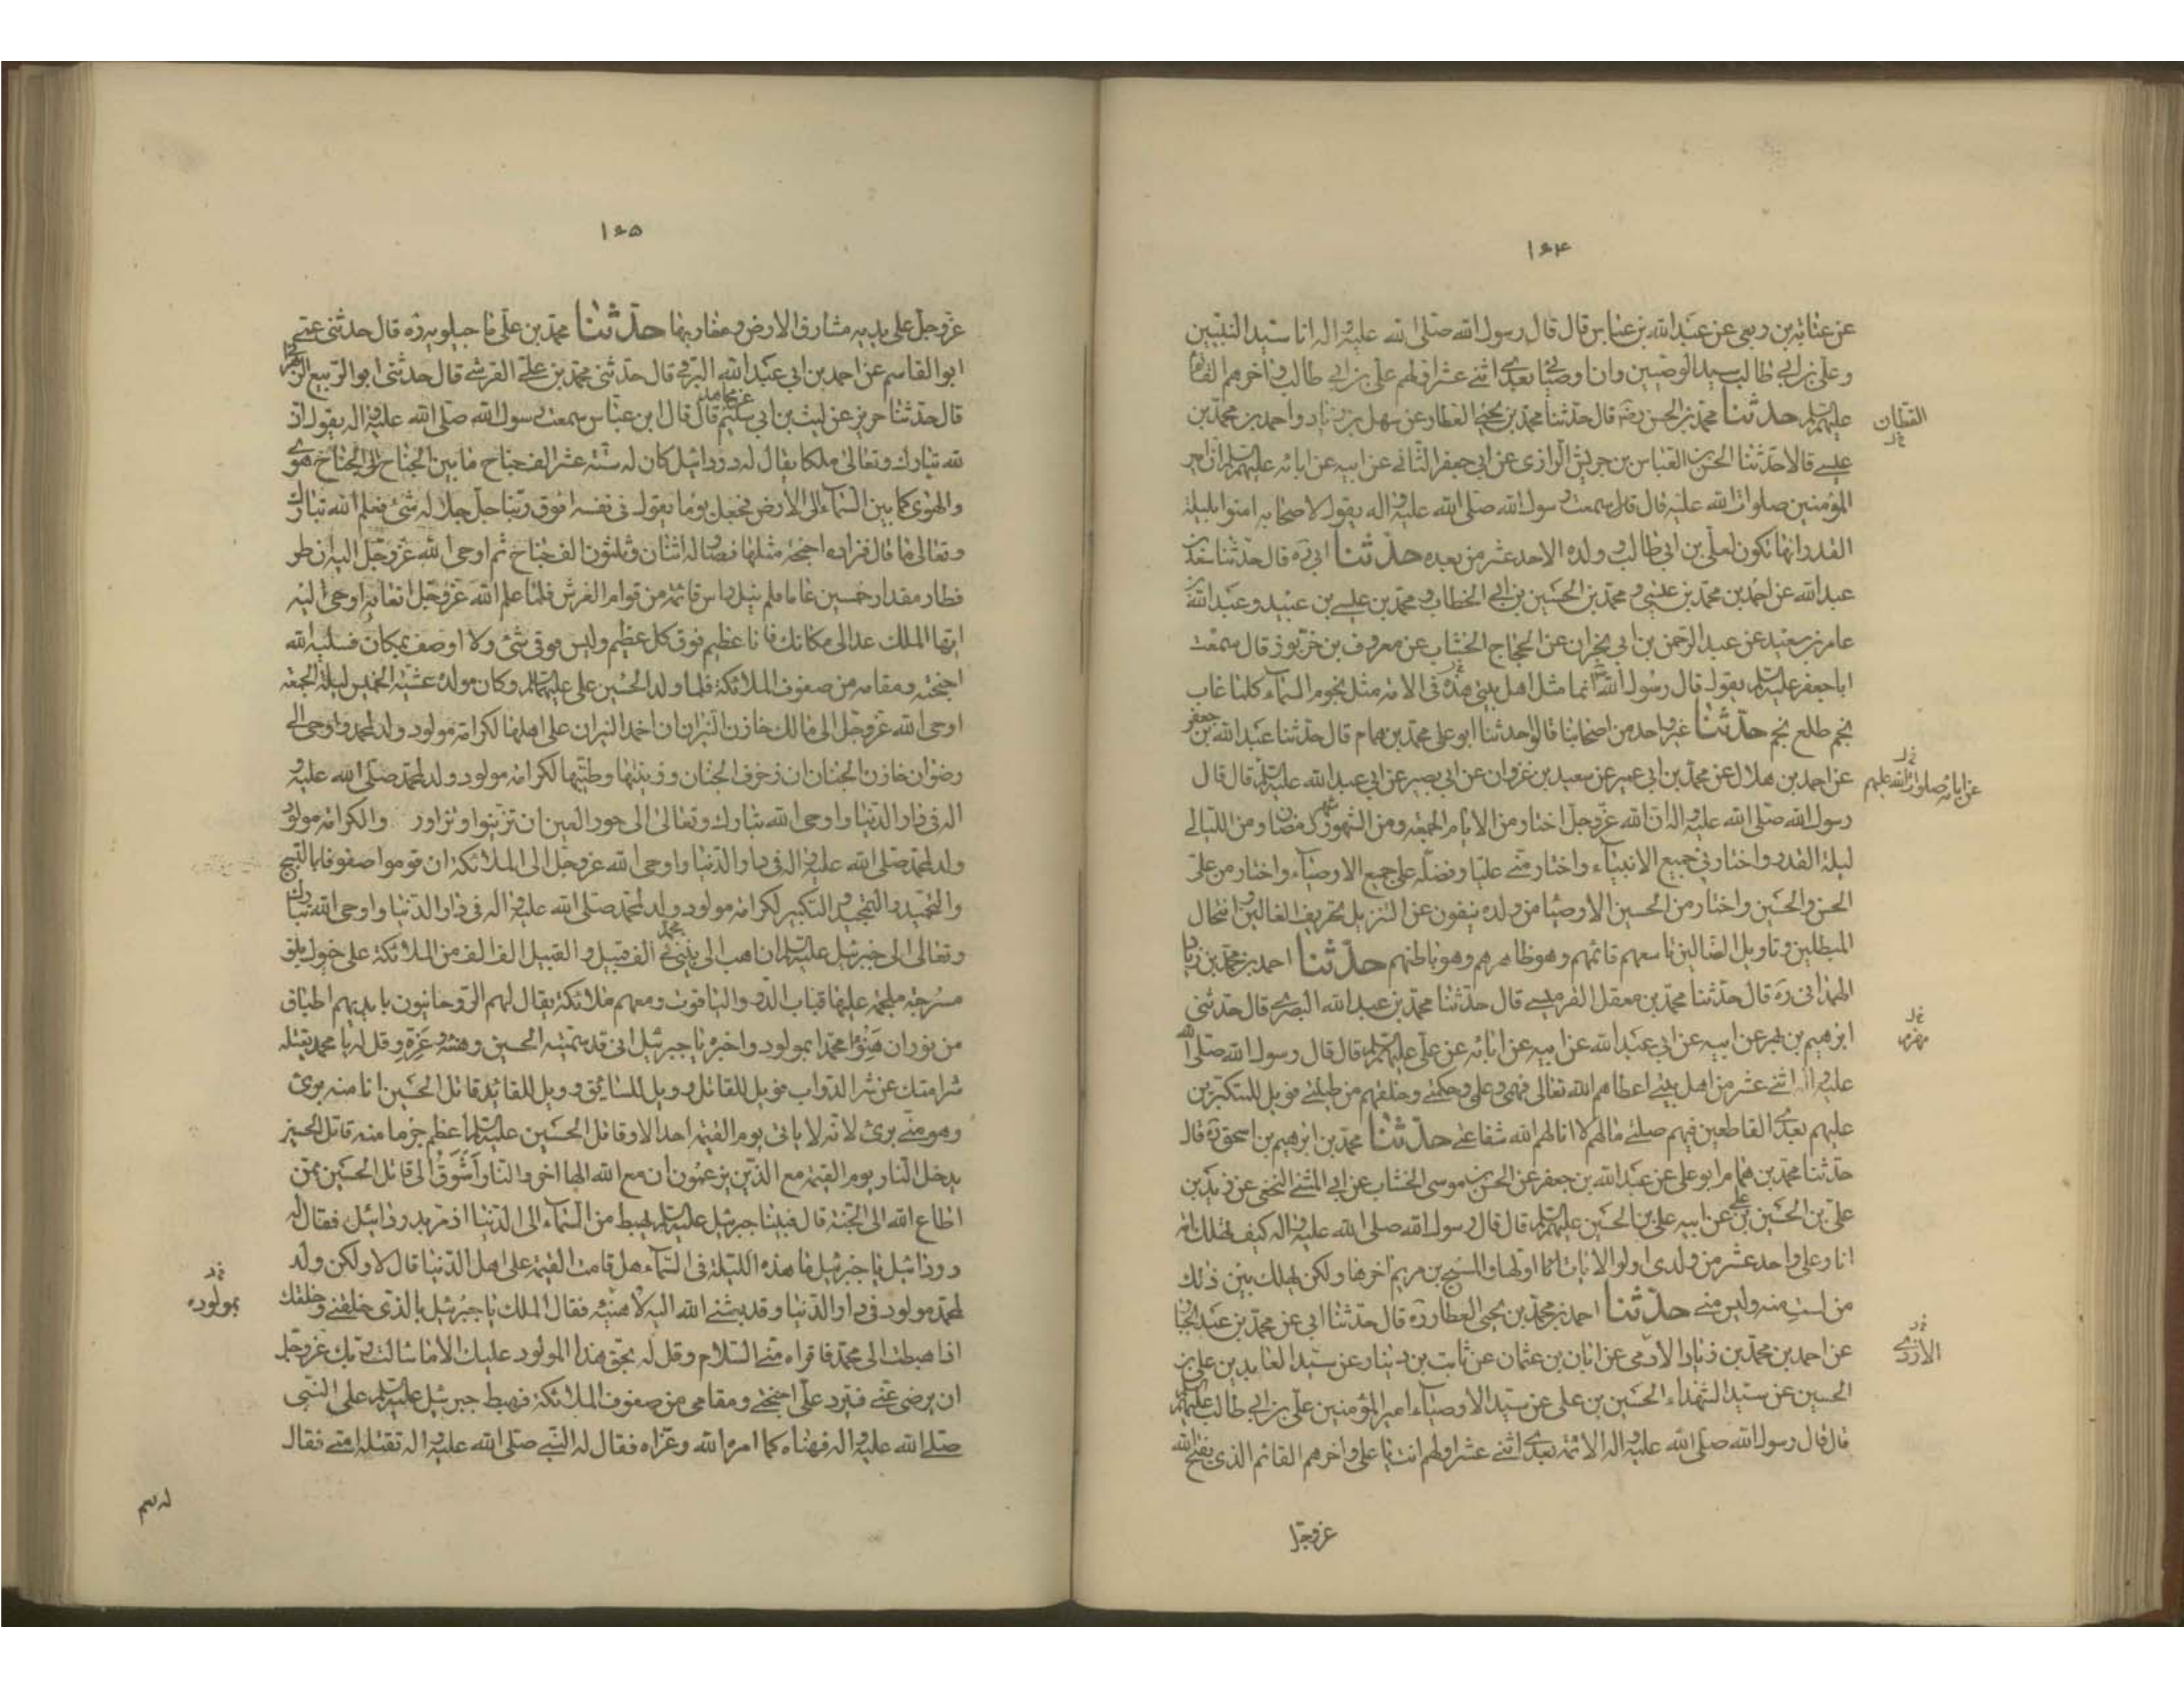 ۱۶۴
عن عبایه بن ربعی عن عبد الله بن عباس قال قال رسول الله صلی الله علیه و اله انا سید النبیین
و علی بن ابی طالب سید الوصیین وان اوصیائی بعدی اثنی عشر اولهم علی بن ابی طالب و اخرهم القائم
علیهم السلم حدثنا محمد بن الحسن رضه قال حدثنا محمد بن یحیی العطار عن سهل بن زیاد و احمد بن محمد بن
القطان
خ ل
عیسی قالا حدثنا الحسن بن العباس بن حریش الرازی عن ابی جعفر الثانی عن ابیه عن ابائه علیهم السلم ان امیر
المؤمنین صلوات الله علیه قال قال سمعت رسول الله صلی الله علیه و اله یقول لاصحابه امنوا بلیلة
القدر انها تکون لعلی بن ابی طالب و ولده الاحد عشر من بعده حدثنا ابی ره قال حدثنا سعد بن
عبد الله عن احمد بن محمد بن عیسی و محمد بن الحسین بن ابی الخطاب و محمد بن عیسی بن عبید و عبد الله بن
عامر بن سعید عن عبد الرحمن بن ابی نجران عن الحجاج الخشاب عن معروف بن خربوذ قال سمعت
ابا جعفر علیه السلم یقول قال رسول الله انما مثل اهل بیتی هذه فی الامه مثل نجوم السماء کلما غاب
نجم طلع نجم حدثنا غیر واحد من اصحابنا قالوا حدثنا ابو علی محمد بن همام قال حدثنا عبد الله بن جعفر
عن احمد بن هلال عن محمد بن ابی عمیر عن سعید بن غزوان عن ابی بصیر عن ابی عبد الله علیه السلم قال قال
خ ل
عن ابائه صلوات الله علیهم
رسول الله صلی الله علیه و اله ان الله عز و جل اختار من الایام الجمعه و من الشهور شهر رمضان و من اللیالی
لیلة القدر و اختارنی جمیع الانبیاء و اختار منی علیا و فضله علی جمیع الاوصیاء و اختار من علی
الحسن و الحسین و اختار من الحسین الاوصیا من ولده ینفون عن التنزیل تحریف الغالین و انتحال
المبطلین و تاویل الضالین تاسعهم قائمهم و هو ظاهرهم و هو باطنهم حدثنا احمد بن محمد بن زیاد
الهمدانی ره قال حدثنا محمد بن معقل القرمیسی قال حدثنا محمد بن عبد الله البصری قال حدثنی
ابرهیم بن مهزم عن ابیه عن ابی عبد الله عن ابیه عن ابائه عن علی علیهم السلم قال قال رسول الله صلی الله
خ ل
مهزم
علیه و اله اثنی عشر من اهل بیتی اعطاهم الله تعالی فهمی و علمی و حکمتی و خلقهم من طینتی فویل للمتکبرین
علیهم بعدی القاطعین فیهم صلتی مالهم لا انالهم الله شفاعتی حدثنا محمد بن ابرهیم بن اسحق ره قال
حدثنا محمد بن همام ابو علی عن عبد الله بن جعفر عن الحسن بن موسی الخشاب عن ابی المثنی النخعی عن زید بن
علی بن الحسین بن علی عن ابیه علی بن الحسین علیهم السلم قال قال رسول الله صلی الله علیه و اله کیف تهلک امة
انا و علی و احد عشر من ولدی اولو الالباب انا اولها و المسیح بن مریم اخرها و لکن یهلک بین ذلک
من لست منه و لیس منی حدثنا احمد بن محمد بن یحیی العطار ره قال حدثنا ابی عن محمد بن عبد الجبار
عن احمد بن محمد بن زیاد الادمی عن ابان بن عثمان عن ثابت بن دینار عن سید العابدین علی بن
خ ل
الازدی
الحسین عن سید الشهداء الحسین بن علی عن سید الاوصیاء امیر المؤمنین علی بن ابی طالب علیهم السلم
قال قال رسول الله صلی الله علیه و اله الائمة بعدی اثنی عشر اولهم انت یا علی و اخرهم القائم الذی یفتح الله
عز و جل
۱۶۵
عز و جل علی یدیه مشارق الارض و مغاربها حدثنا محمد بن علی ماجیلویه ره قال حدثنی عمی
ابو القاسم عن احمد بن ابی عبد الله البرقی قال حدثنی محمد بن علی القرشی قال حدثنی ابو الربیع الزهرانی
قال حدثنا حریز عن لیث بن ابی سلیم عن مجاهد قال قال ابن عباس سمعت رسول الله صلی الله علیه و اله یقول ان
لله تبارک و تعالی ملکا یقال له دردائیل کان له ستة عشر الف جناح ما بین الجناح الی الجناح هوی
و الهوی کما بین السماء الی الارض فجعل یوما یقول فی نفسه افوق ربنا جل جلاله شیء فعلم الله تبارک
و تعالی ما قال فزاده اجنحة مثلها فصار له اثنان و ثلثون الف جناح ثم اوحی الله عز و جل الیه ان طر
فطار مقدار خمسین عاما فلم ینل راس قائمة من قوام العرش فلما علم الله عز و جل اتعابه اوحی الیه
ایها الملک عد الی مکانک فانا عظیم فوق کل عظیم و لیس فوقی شیء و لا اوصف بمکان فسلبه الله
اجنحته و مقامه من صفوف الملائکة فلما ولد الحسین علی علیهما السلم و کان مولده عشیة الخمیس لیلة الجمعة
اوحی الله عز و جل الی مالک خازن النیران ان اخمد النیران علی اهلها لکرامة مولود ولد لمحمد و اوحی الی
رضوان خازن الجنان ان زخرف الجنان و زینها و طیبها لکرامة مولود ولد لمحمد صلی الله علیه و
اله فی دار الدنیا و اوحی الله تبارک و تعالی الی حور العین ان تزینوا و تزاور والکرامة مولود
ولد لمحمد صلی الله علیه و اله فی دار الدنیا و اوحی الله عز و جل الی الملائکة ان قوموا صفوفا بالتسبیح
و التحمید و التمجید و التکبیر لکرامة مولود ولد لمحمد صلی الله علیه و اله فی دار الدنیا و اوحی الله تبارک
و تعالی الی جبرئیل علیه السلم ان اهبط الی نبیی محمد فی الف قبیل و القبیل الف الف من الملائکة علی خیول بلق
مسرجة ملجمة علیها قباب الدر و الیاقوت و معهم ملائکة یقال لهم الروحانیون بایدیهم اطباق
من نور ان هنئوا محمدا بمولود و اخبره یا جبرئیل انی قد سمیته الحسین و هنئه و عزه و قل له یا محمد یقتله
شرامتک عن شر الدواب فویل للقاتل و ویل للسائق و ویل للقائد قاتل الحسین انا منه بریء
و هو منی بریء لانه لا یاتی یوم القیمة احد الا و قاتل الحسین علیه السلم اعظم جرما منه قاتل الحسین
یدخل النار یوم القیمة مع الذین یزعمون ان مع الله الها اخر و النار اشوق الی قاتل الحسین ممن
اطاع الله الی الجنة قال فبینا جبرئیل علیه السلم یهبط من السماء الی الدنیا اذ مر بدردائیل فقال له
دردائیل یا جبرئیل ما هذه اللیلة فی السماء هل قامت القیمة علی اهل الدنیا قال لا و لکن ولد
لمحمد مولود فی دار الدنیا و قد بعثنی الله الیه لاهنئه فقال الملک یا جبرئیل بالذی خلقنی و خلقک
خ ل
بمولوده
اذا هبطت الی محمد فاقراه منی السلام و قل له بحق هذا المولود علیک الا ما سالت ربک عز و جل
ان یرضی عنی فیرد علی اجنحتی و مقامی من صفوف الملائکة فهبط جبرئیل علیه السلم علی النبی
صلی الله علیه و اله فهناه کما امره الله و عزاه فقال له النبی صلی الله علیه و اله تقتله امتی فقال